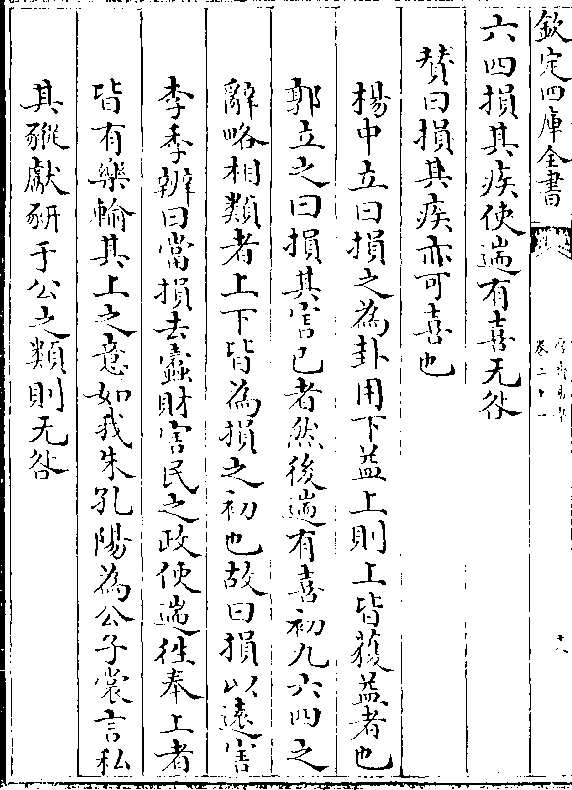 欽定四庫全書
卷二十一
十八
六四損其疾使遄有喜无咎
贊曰損其疾亦可喜也
楊中立曰損之為卦用下益上則上皆獲益者也
郭立之曰損其害已者然後遄有喜初九六四之
辭略相類者上下皆為損之初也故曰損以遠害
李季辨曰當損去蠹財害民之政使遄徃奉上者
皆有樂輸其上之意如我朱孔陽為公子裳言私
其豵獻豜于公之類則无咎